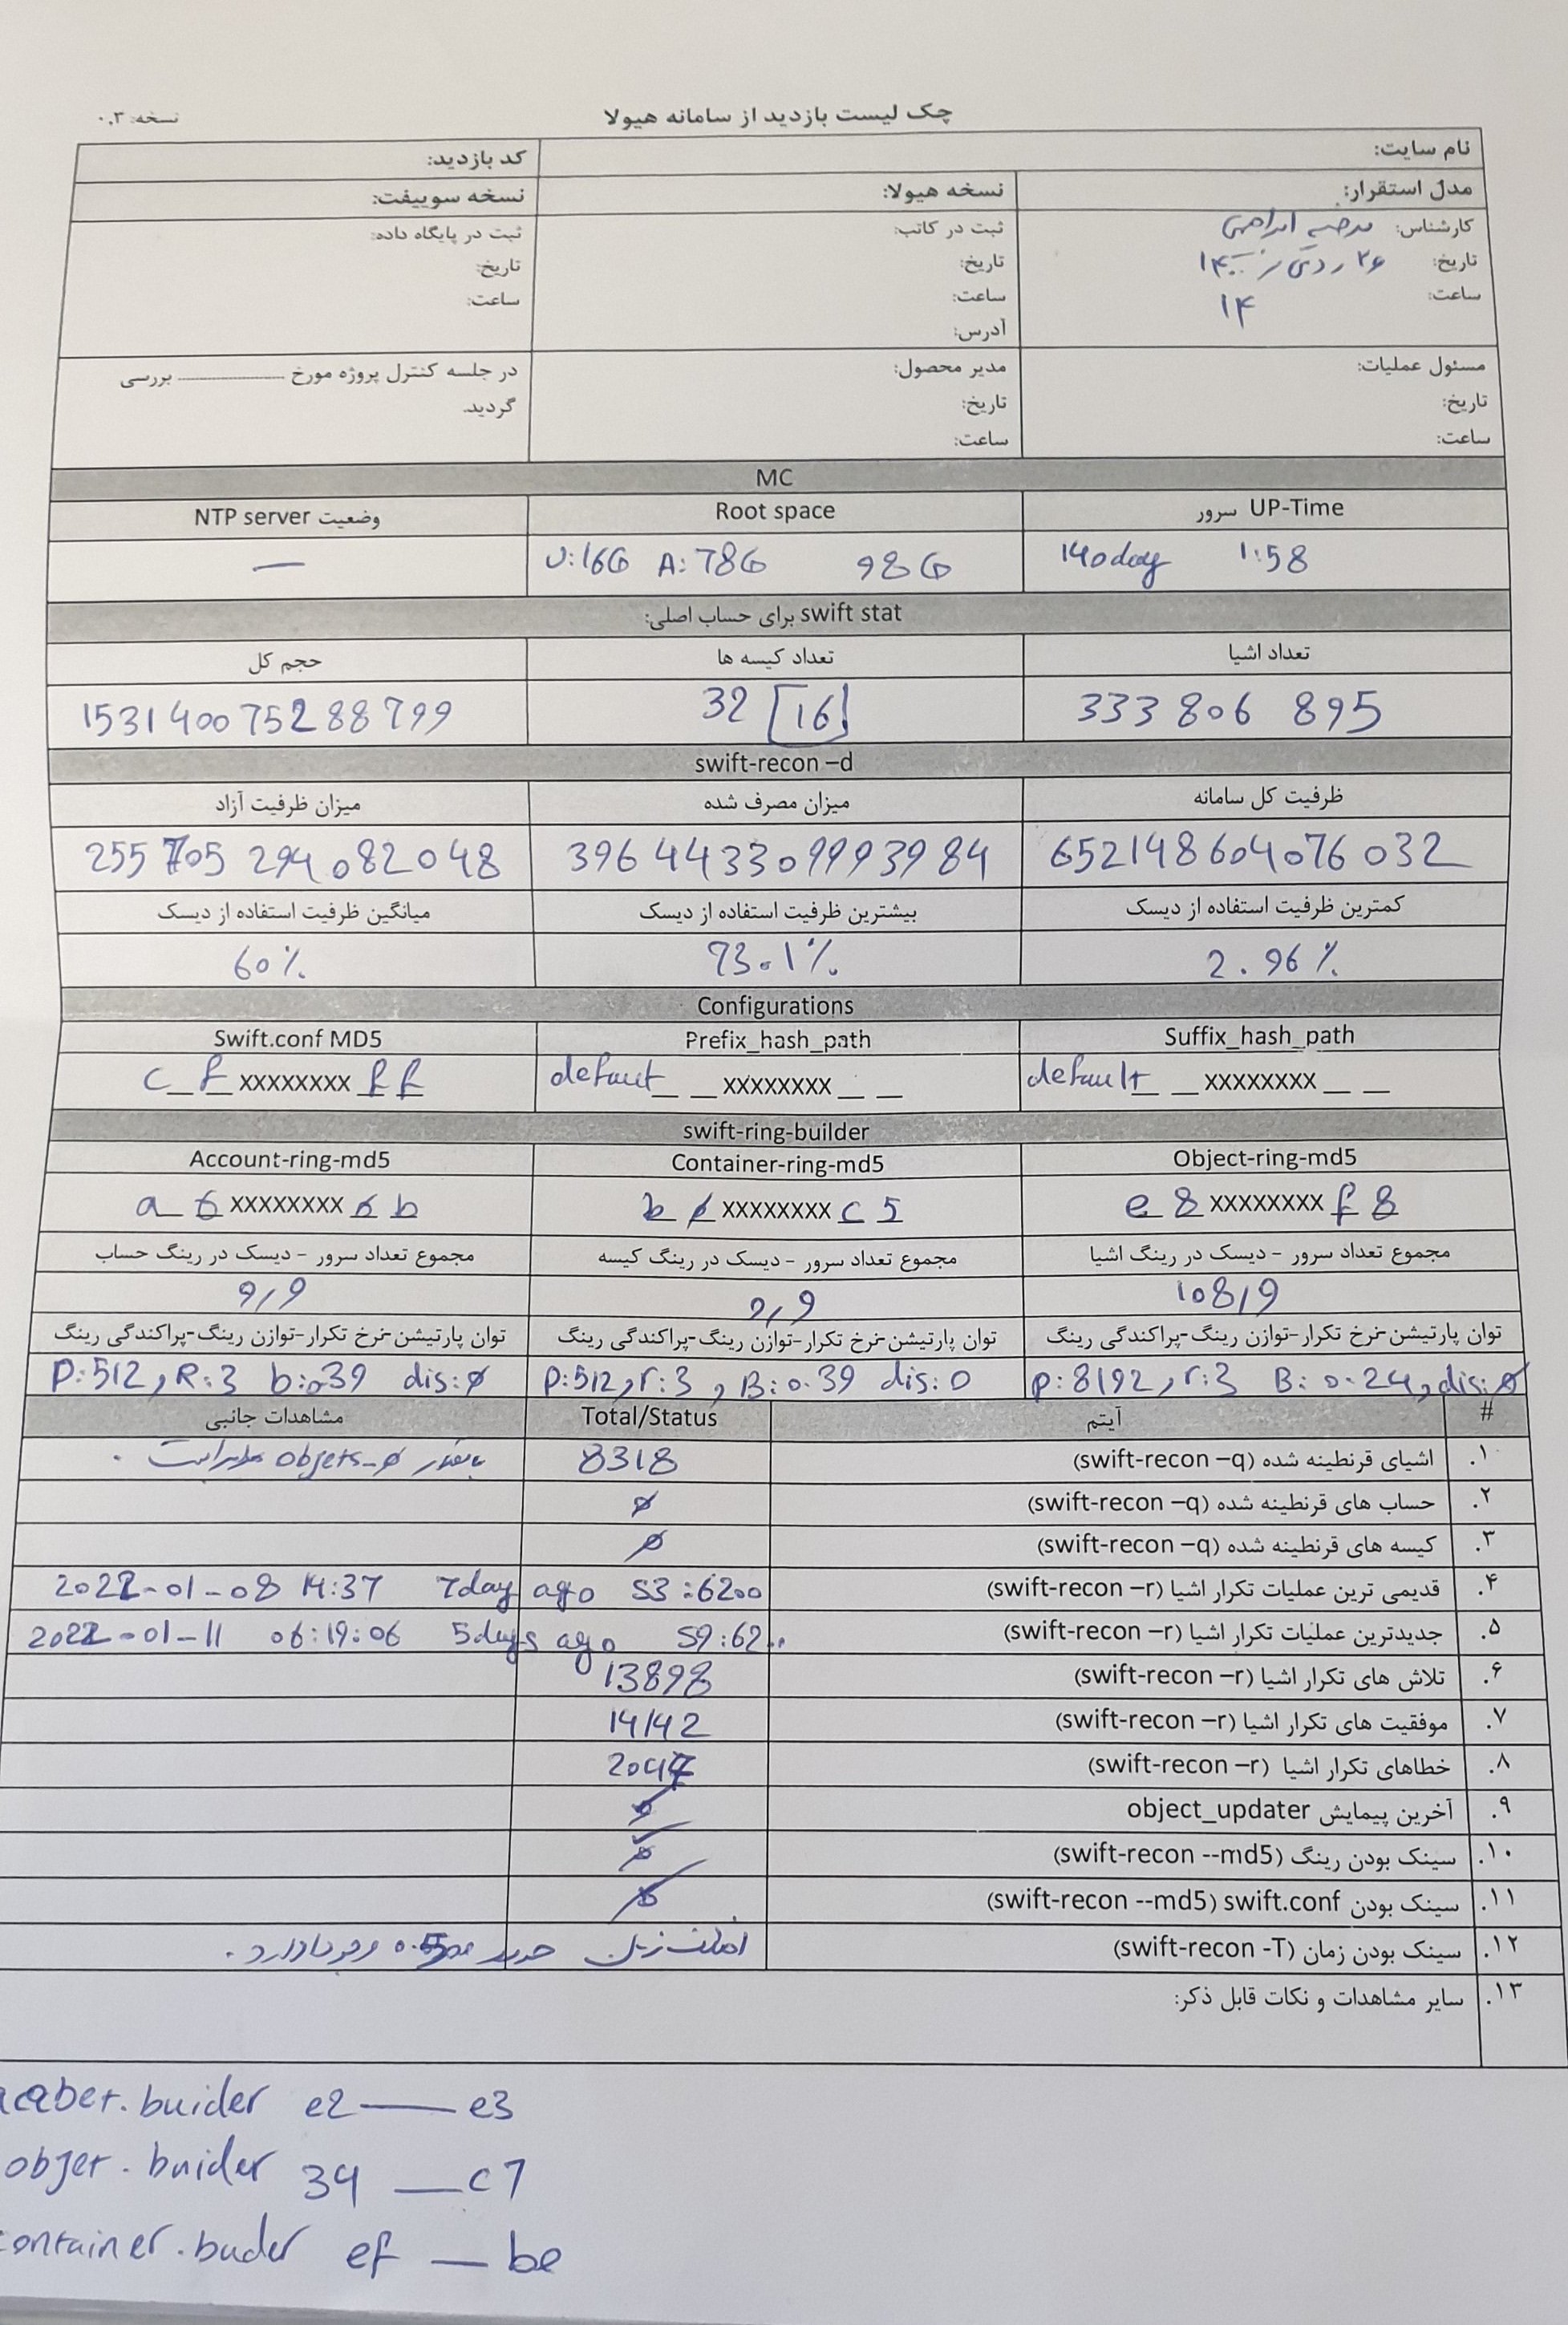 چک لیست بازدید از سامانه هیولا
نسخه: ۰.۳
نام سایت:
کد بازدید:
مدل استقرار:
نسخه هیولا:
نسخه سوییفت:
کارشناس: مرضیه ابراهیمی
تاریخ: ۲۶ / دی / ۱۴۰۰
ساعت: ۱۴
ثبت در کاتب:
تاریخ:
ساعت:
آدرس:
ثبت در پایگاه داده:
تاریخ:
ساعت:
مسئول عملیات:
تاریخ:
ساعت:
مدیر محصول:
تاریخ:
ساعت:
در جلسه کنترل پروژه مورخ ـــــــــــ بررسی
گردید.
MC
UP-Time سرور
Root space
وضعیت NTP server
140day 1:58
U:16G A:78G 98G
—
swift stat برای حساب اصلی:
تعداد اشیا
تعداد کیسه ها
حجم کل
333 806 895
32 [16]
153140075288799
swift-recon –d
ظرفیت کل سامانه
میزان مصرف شده
میزان ظرفیت آزاد
652148604076032
396443309993984
255705294082048
کمترین ظرفیت استفاده از دیسک
بیشترین ظرفیت استفاده از دیسک
میانگین ظرفیت استفاده از دیسک
2.96%
73.1%
60%
Configurations
Suffix_hash_path
Prefix_hash_path
Swift.conf MD5
default_ _xxxxxxxx_ _
defaut_ _xxxxxxxx_ _
c f xxxxxxxx f f
swift-ring-builder
Object-ring-md5
Container-ring-md5
Account-ring-md5
e 8 xxxxxxxx f 8
b xxxxxxxx c 5
a 6 xxxxxxxx 6 b
مجموع تعداد سرور - دیسک در رینگ اشیا
مجموع تعداد سرور - دیسک در رینگ کیسه
مجموع تعداد سرور - دیسک در رینگ حساب
108/9
9/9
9/9
توان پارتیشن-نرخ تکرار-توازن رینگ-پراکندگی رینگ
توان پارتیشن-نرخ تکرار-توازن رینگ-پراکندگی رینگ
توان پارتیشن-نرخ تکرار-توازن رینگ-پراکندگی رینگ
P:8192, r:3 B: 0.24, dis:0
P:512, r:3, B:0.39 dis:0
P:512, R:3 b:039 dis:0
# آیتم Total/Status مشاهدات جانبی
۱. اشیای قرنطینه شده (swift-recon –q) 8318
۲. حساب های قرنطینه شده (swift-recon –q) 0
۳. کیسه های قرنطینه شده (swift-recon –q) 0
۴. قدیمی ترین عملیات تکرار اشیا (swift-recon –r) 2022-01-08 14:37 7day ago S3:6200
۵. جدیدترین عملیات تکرار اشیا (swift-recon –r) 2022-01-11 06:19:06 5days ago S9:62..
۶. تلاش های تکرار اشیا (swift-recon –r) 13898
۷. موفقیت های تکرار اشیا (swift-recon –r) 14142
۸. خطاهای تکرار اشیا (swift-recon –r)
۹. آخرین پیمایش object_updater
۱۰. سینک بودن رینگ (swift-recon --md5)
۱۱. سینک بودن swift.conf (swift-recon --md5)
۱۲. سینک بودن زمان (swift-recon -T)
۱۳. سایر مشاهدات و نکات قابل ذکر:
.buider e2 — e3
objet.buider 34 — c7
container.buder ef — be